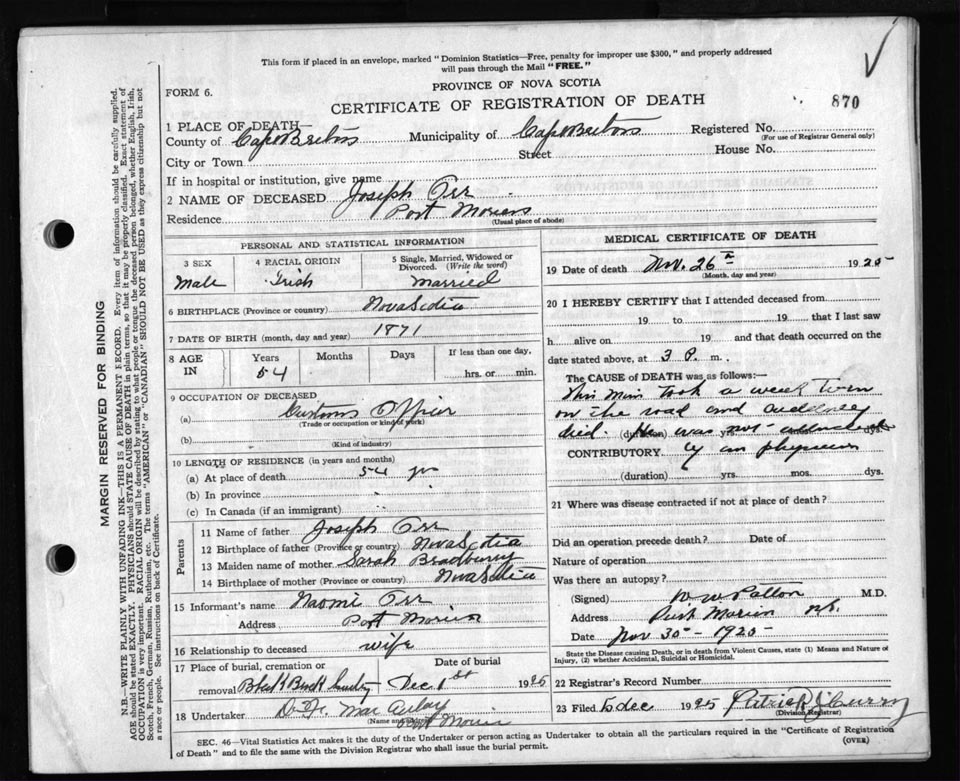 This form if placed in an envelope, marked "Dominion Statistics—Free, penalty for improper use $300," and properly addressed
will pass through the Mail "FREE."
PROVINCE OF NOVA SCOTIA
FORM 6.
CERTIFICATE OF REGISTRATION OF DEATH
870
1 PLACE OF DEATH—
County of Cape Breton Municipality of Cape Breton Registered No.
(For use of Registrar General only)
City or Town Street House No.
If in hospital or institution, give name
2 NAME OF DECEASED Joseph Orr
Residence Port Morien
(Usual place of abode)
PERSONAL AND STATISTICAL INFORMATION
3 SEX 4 RACIAL ORIGIN 5 Single, Married, Widowed or Divorced. (Write the word)
Male Irish Married
6 BIRTHPLACE (Province or country) Nova Scotia
7 DATE OF BIRTH (month, day and year) 1871
8 AGE IN Years Months Days If less than one day,
54 hrs. or min.
9 OCCUPATION OF DECEASED
(a) Customs Officer
(Trade or occupation or kind of work)
(b)
(Kind of industry)
10 LENGTH OF RESIDENCE (in years and months)
(a) At place of death 54 yrs
(b) In province
(c) In Canada (if an immigrant)
Parents
11 Name of father Joseph Orr
12 Birthplace of father (Province or country) Nova Scotia
13 Maiden name of mother Sarah Bradbury
14 Birthplace of mother (Province or country) Nova Scotia
15 Informant's name Naomi Orr
Address Port Morien
16 Relationship to deceased wife
17 Place of burial, cremation or Date of burial
removal Black Brook Dec 1st 1925
18 Undertaker Mac Aulay
(Name and address)
Port Morien
MEDICAL CERTIFICATE OF DEATH
19 Date of death Nov. 26th 1925
(Month, day and year)
20 I HEREBY CERTIFY that I attended deceased from
19 to 19 that I last saw
h alive on 19 and that death occurred on the
date stated above, at 3 P. m.
The CAUSE of DEATH was as follows:—
This man took a weak turn
on the road and suddenly
died. He was not attended
(duration) yrs. dys.
CONTRIBUTORY by any physician
(duration) yrs. mos. dys.
21 Where was disease contracted if not at place of death?
Did an operation precede death? Date of
Nature of operation
Was there an autopsy?
(Signed) W W Patton M.D.
Address Port Morien N.S.
Date Nov 30 - 1925
State the Disease causing Death, or in death from Violent Causes, state (1) Means and Nature of
Injury, (2) whether Accidental, Suicidal or Homicidal.
22 Registrar's Record Number
23 Filed 5 Dec 1925 Patrick J Curry
(Division Registrar)
SEC. 46—Vital Statistics Act makes it the duty of the Undertaker or person acting as Undertaker to obtain all the particulars required in the "Certificate of Registration
of Death" and to file the same with the Division Registrar who shall issue the burial permit.
(OVER)
MARGIN RESERVED FOR BINDING
N.B.—WRITE PLAINLY WITH UNFADING INK—THIS IS A PERMANENT RECORD. Every item of information should be carefully supplied.
AGE should be stated EXACTLY. PHYSICIANS should STATE CAUSE OF DEATH in plain terms, so that it may be properly classified. Exact statement of
OCCUPATION is very important. RACIAL ORIGIN will be described by stating to what people or tongue the deceased person belonged, whether English, Irish,
Scotch, French, German, Russian, Ruthenian, etc. The terms "AMERICAN" or "CANADIAN" SHOULD NOT BE USED as they express citizenship but not
a race or people. See instructions on back of Certificate.